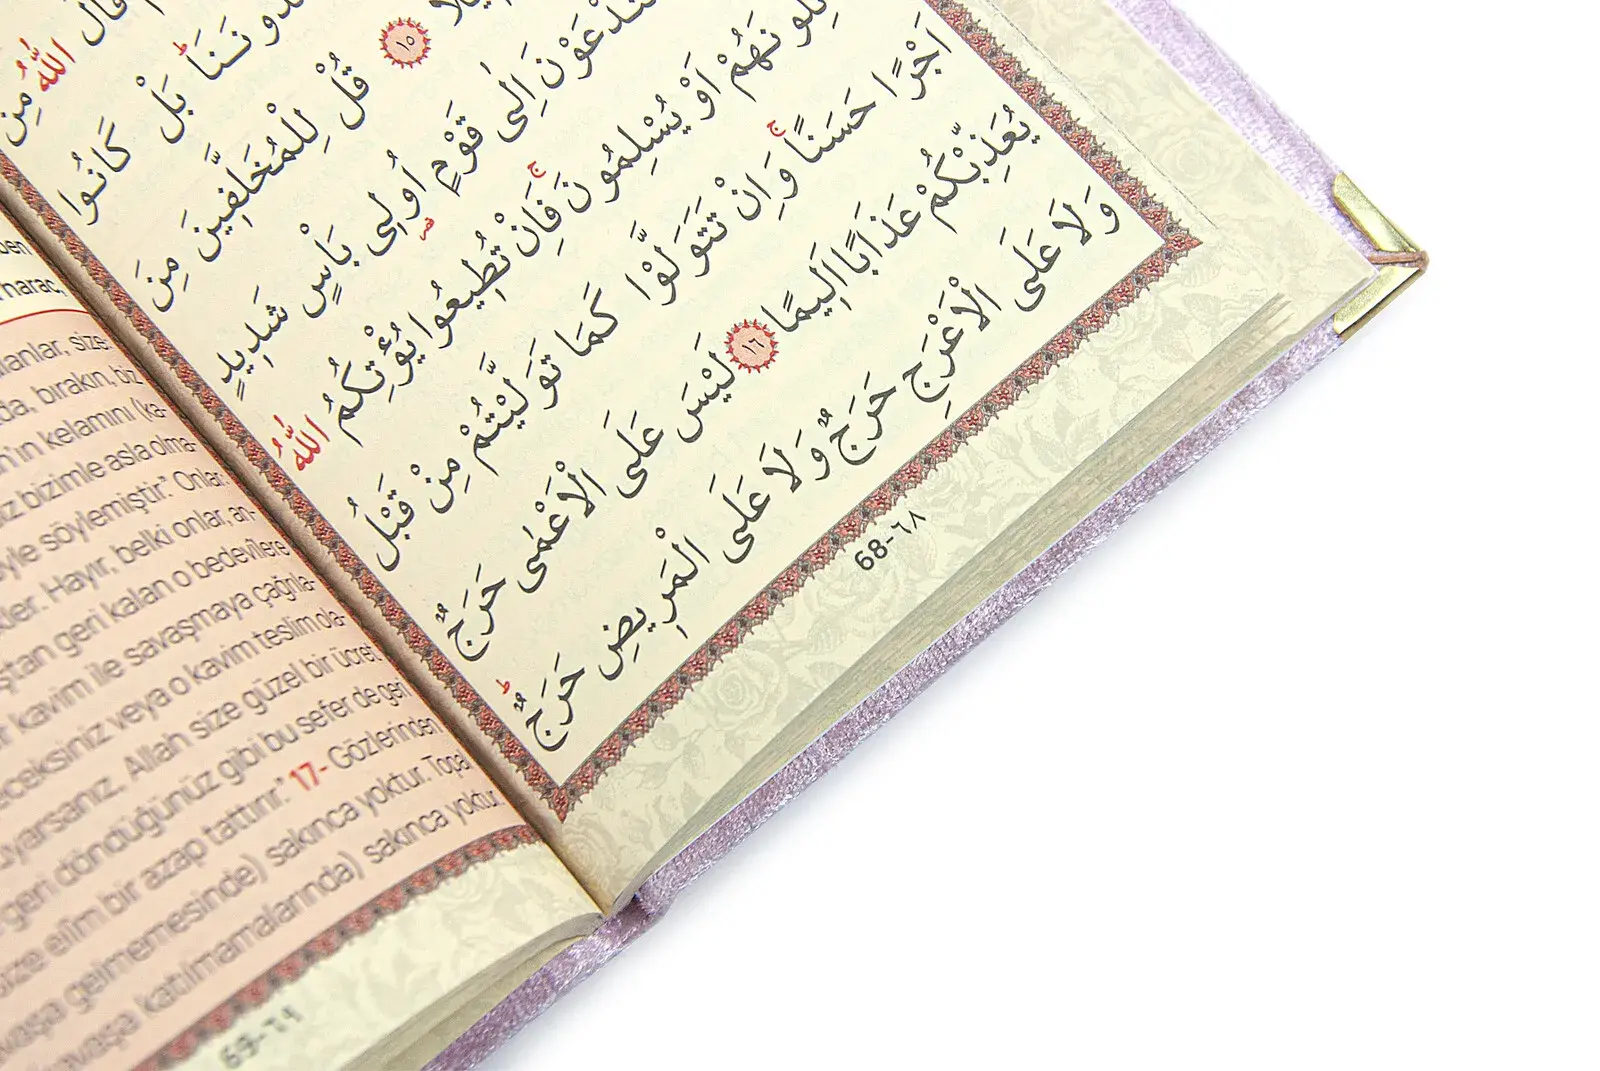 قَالَ اللّٰهُ مِنْ
بَلْ كَانُوا
١٥ قُلْ لِلْمُخَلَّفِينَ مِنَ
اِلٰى قَوْمٍ اُو۬لِى بَأْسٍ شَدِيدٍ
اَوْ يُسْلِمُونَۚ فَاِنْ تُطِيعُوا يُؤْتِكُمُ اللّٰهُ
اَجْرًا حَسَنًاۚ وَاِنْ تَتَوَلَّوْا كَمَا تَوَلَّيْتُمْ مِنْ قَبْلُ
يُعَذِّبْكُمْ عَذَابًا اَلِيمًا ١٦ لَيْسَ عَلَى الْاَعْمٰى حَرَجٌ
وَلَا عَلَى الْاَعْرَجِ حَرَجٌ وَلَا عَلَى الْمَرِيضِ حَرَجٌۜ
68-٦٨
harac,
size:
bırakın, biz
kelamını (ka-
bizimle asla olma-
söylemiştir." Onlar
Hayır, belki onlar, an-
geri kalan o bedevîlere
kavim ile savaşmaya çağrıla-
veya o kavim teslim ola-
Allah size güzel bir ücret
geri döndüğünüz gibi bu sefer de geri
size elîm bir azap tattırır." 17- Gözlerinden
gelmemesinde) sakınca yoktur. Topal
katılmamalarında) sakınca yoktur.
69-٦٩